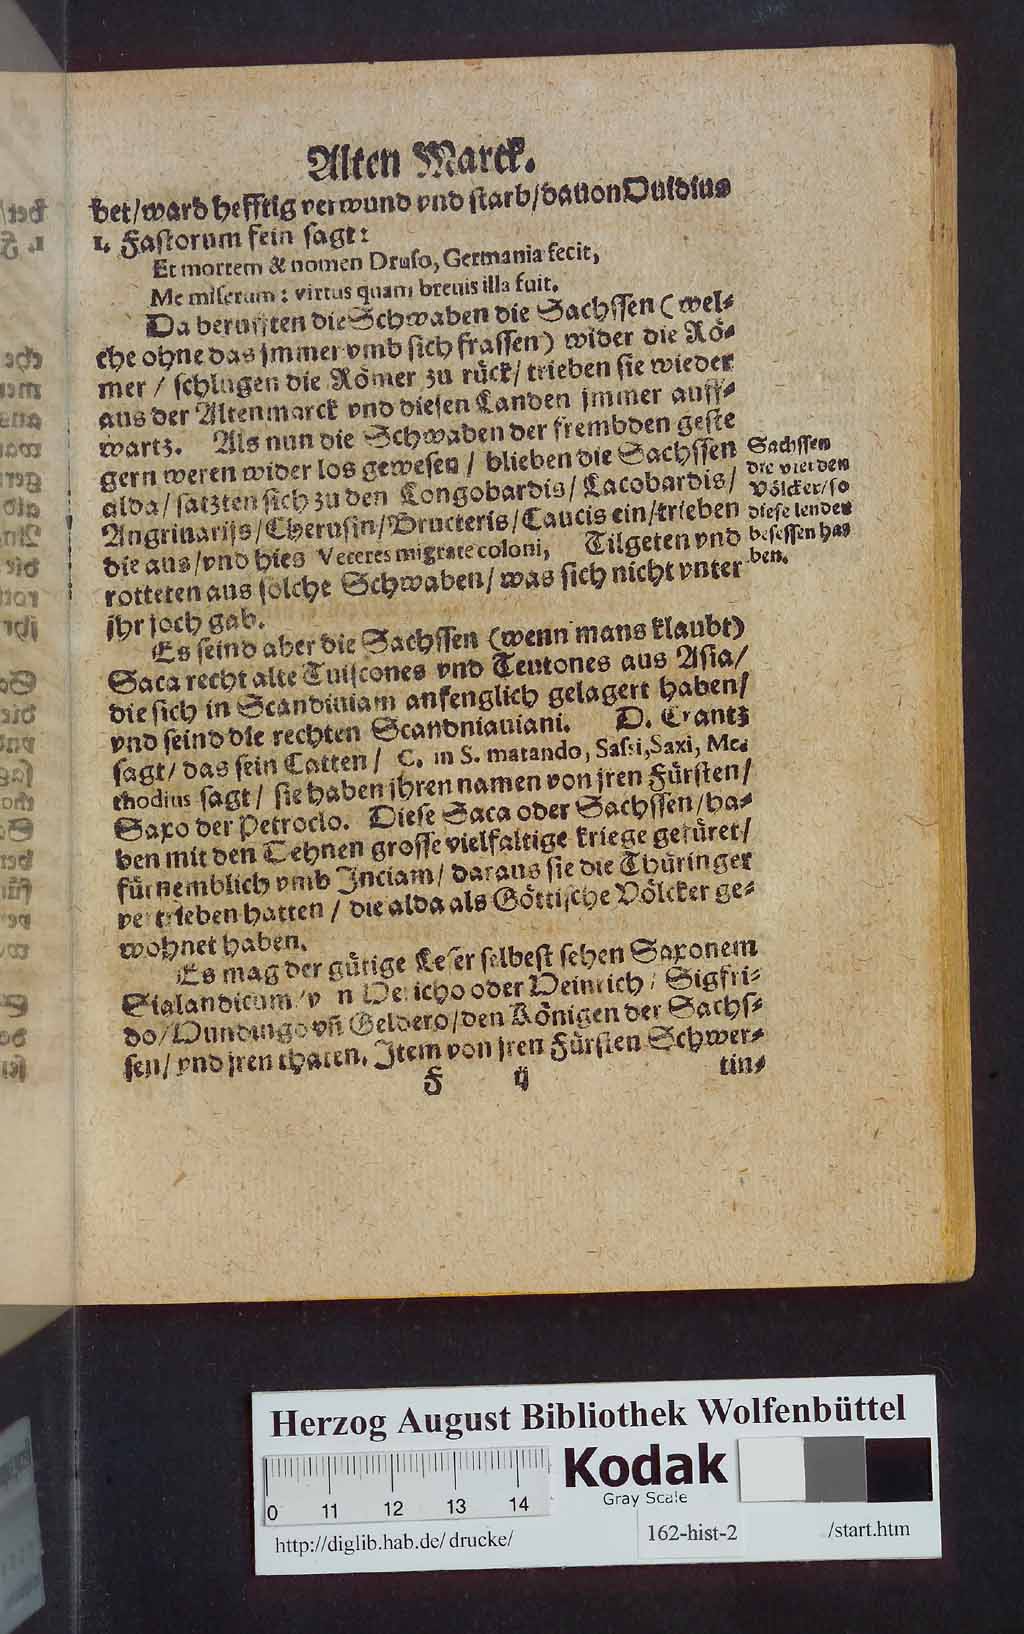 Alten Marck.
bet/ward hefftig verwund vnd starb/dauon Ouidius
1. Fastorum fein sagt:
Et mortem & nomen Druso, Germania fecit,
Me miserum: virtus quam breuis illa fuit.
Da berufften die Schwaben die Sachssen (wel-
che ohne das jmmer vmb sich frassen) wider die Rö-
mer / schlugen die Römer zu rück/ trieben sie wieder
aus der Altenmarck vnd diesen Landen jmmer auff-
wartz. Als nun die Schwaben der frembden geste
gern weren wider los gewesen / blieben die Sachssen
alda/ satzten sich zu den Longobardis/ Lacobardis/
Angrinarijs/Cherusin/Bructeris/Caucis ein/trieben
die aus/vnd hies Veteres migrate coloni, Tilgeten vnd
rotteten aus solche Schwaben/ was sich nicht vnter
jhr joch gab.
Sachssen
die vierden
Völcker/so
diese lender
besessen ha-
ben.
Es seind aber die Sachssen (wenn mans klaubt)
Saca recht alte Tuiscones vnd Teutones aus Asia/
die sich in Scandiuiam anfenglich gelagert haben/
vnd seind die rechten Scandniauiani. D. Crantz
sagt/ das sein Catten/ C. in S. mutando, Sassi, Saxi, Me-
thodius sagt/ sie haben jhren namen von jren Fürsten/
Saxo der Petroclo. Diese Saca oder Sachssen/ha-
ben mit den Dehnen grosse vielfaltige kriege gefüret/
fürnemblich vmb Inciam/ daraus sie die Thüringer
vertrieben hatten / die alda als Göttische Völcker ge-
wohnet haben.
Es mag der gütige Leser selbest sehen Saxonem
Sialandicum/ oder Veinrich/ Sigfri-
do/ vñ Geldero/den Königen der Sachs-
sen/ vnd jren thaten. Item von jren Fürsten Schwer-
F ij tin-
Herzog August Bibliothek Wolfenbüttel
Kodak
Gray Scale
0 11 12 13 14
http://diglib.hab.de/drucke/ 162-hist-2 /start.htm